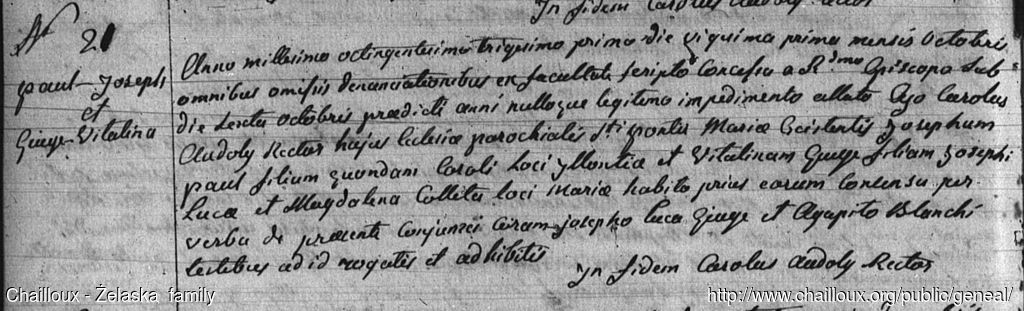 In fidem Carolus Audoly Rector
N 21
paul Joseph
et
Giuge Vitalina
Anno millesimo octingentesimo trigesimo primo die vigesima prima mensis Octobris
omnibus omissis denunciationibus ex facultate scripto concessa a R.dmo Episcopo sub
die sexta octobris prædicti anni nulloque legitimo impedimento allato Ego Carolus
Audoly Rector hujus Eclesiæ parochialis S.ti pontii Mariæ Existentis Josephum
paul filium quondam Caroli loci et Vitalinam Giuge filiam Josephi
Lucæ et Magdalena loci Mariæ habito prius eorum Consensu per
verba de præsenti Conjunxi Coram Josepho Luca Giuge et Agapito Blanchi
testibus ad id rogatis et adhibitis
In fidem Carolus Audoly Rector
Chailloux - Żelaska family
http://www.chailloux.org/public/geneal/